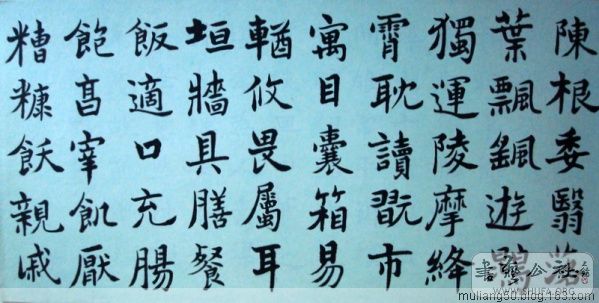 陳根委翳落
葉飄颻遊
獨運陵摩絳
霄耽讀翫市
寓目囊箱易
輶攸畏屬耳
垣牆具膳餐
飯適口充腸
飽亯宰飢厭
糟糠飫親戚
書藝公社
muliang50.blog.163.com